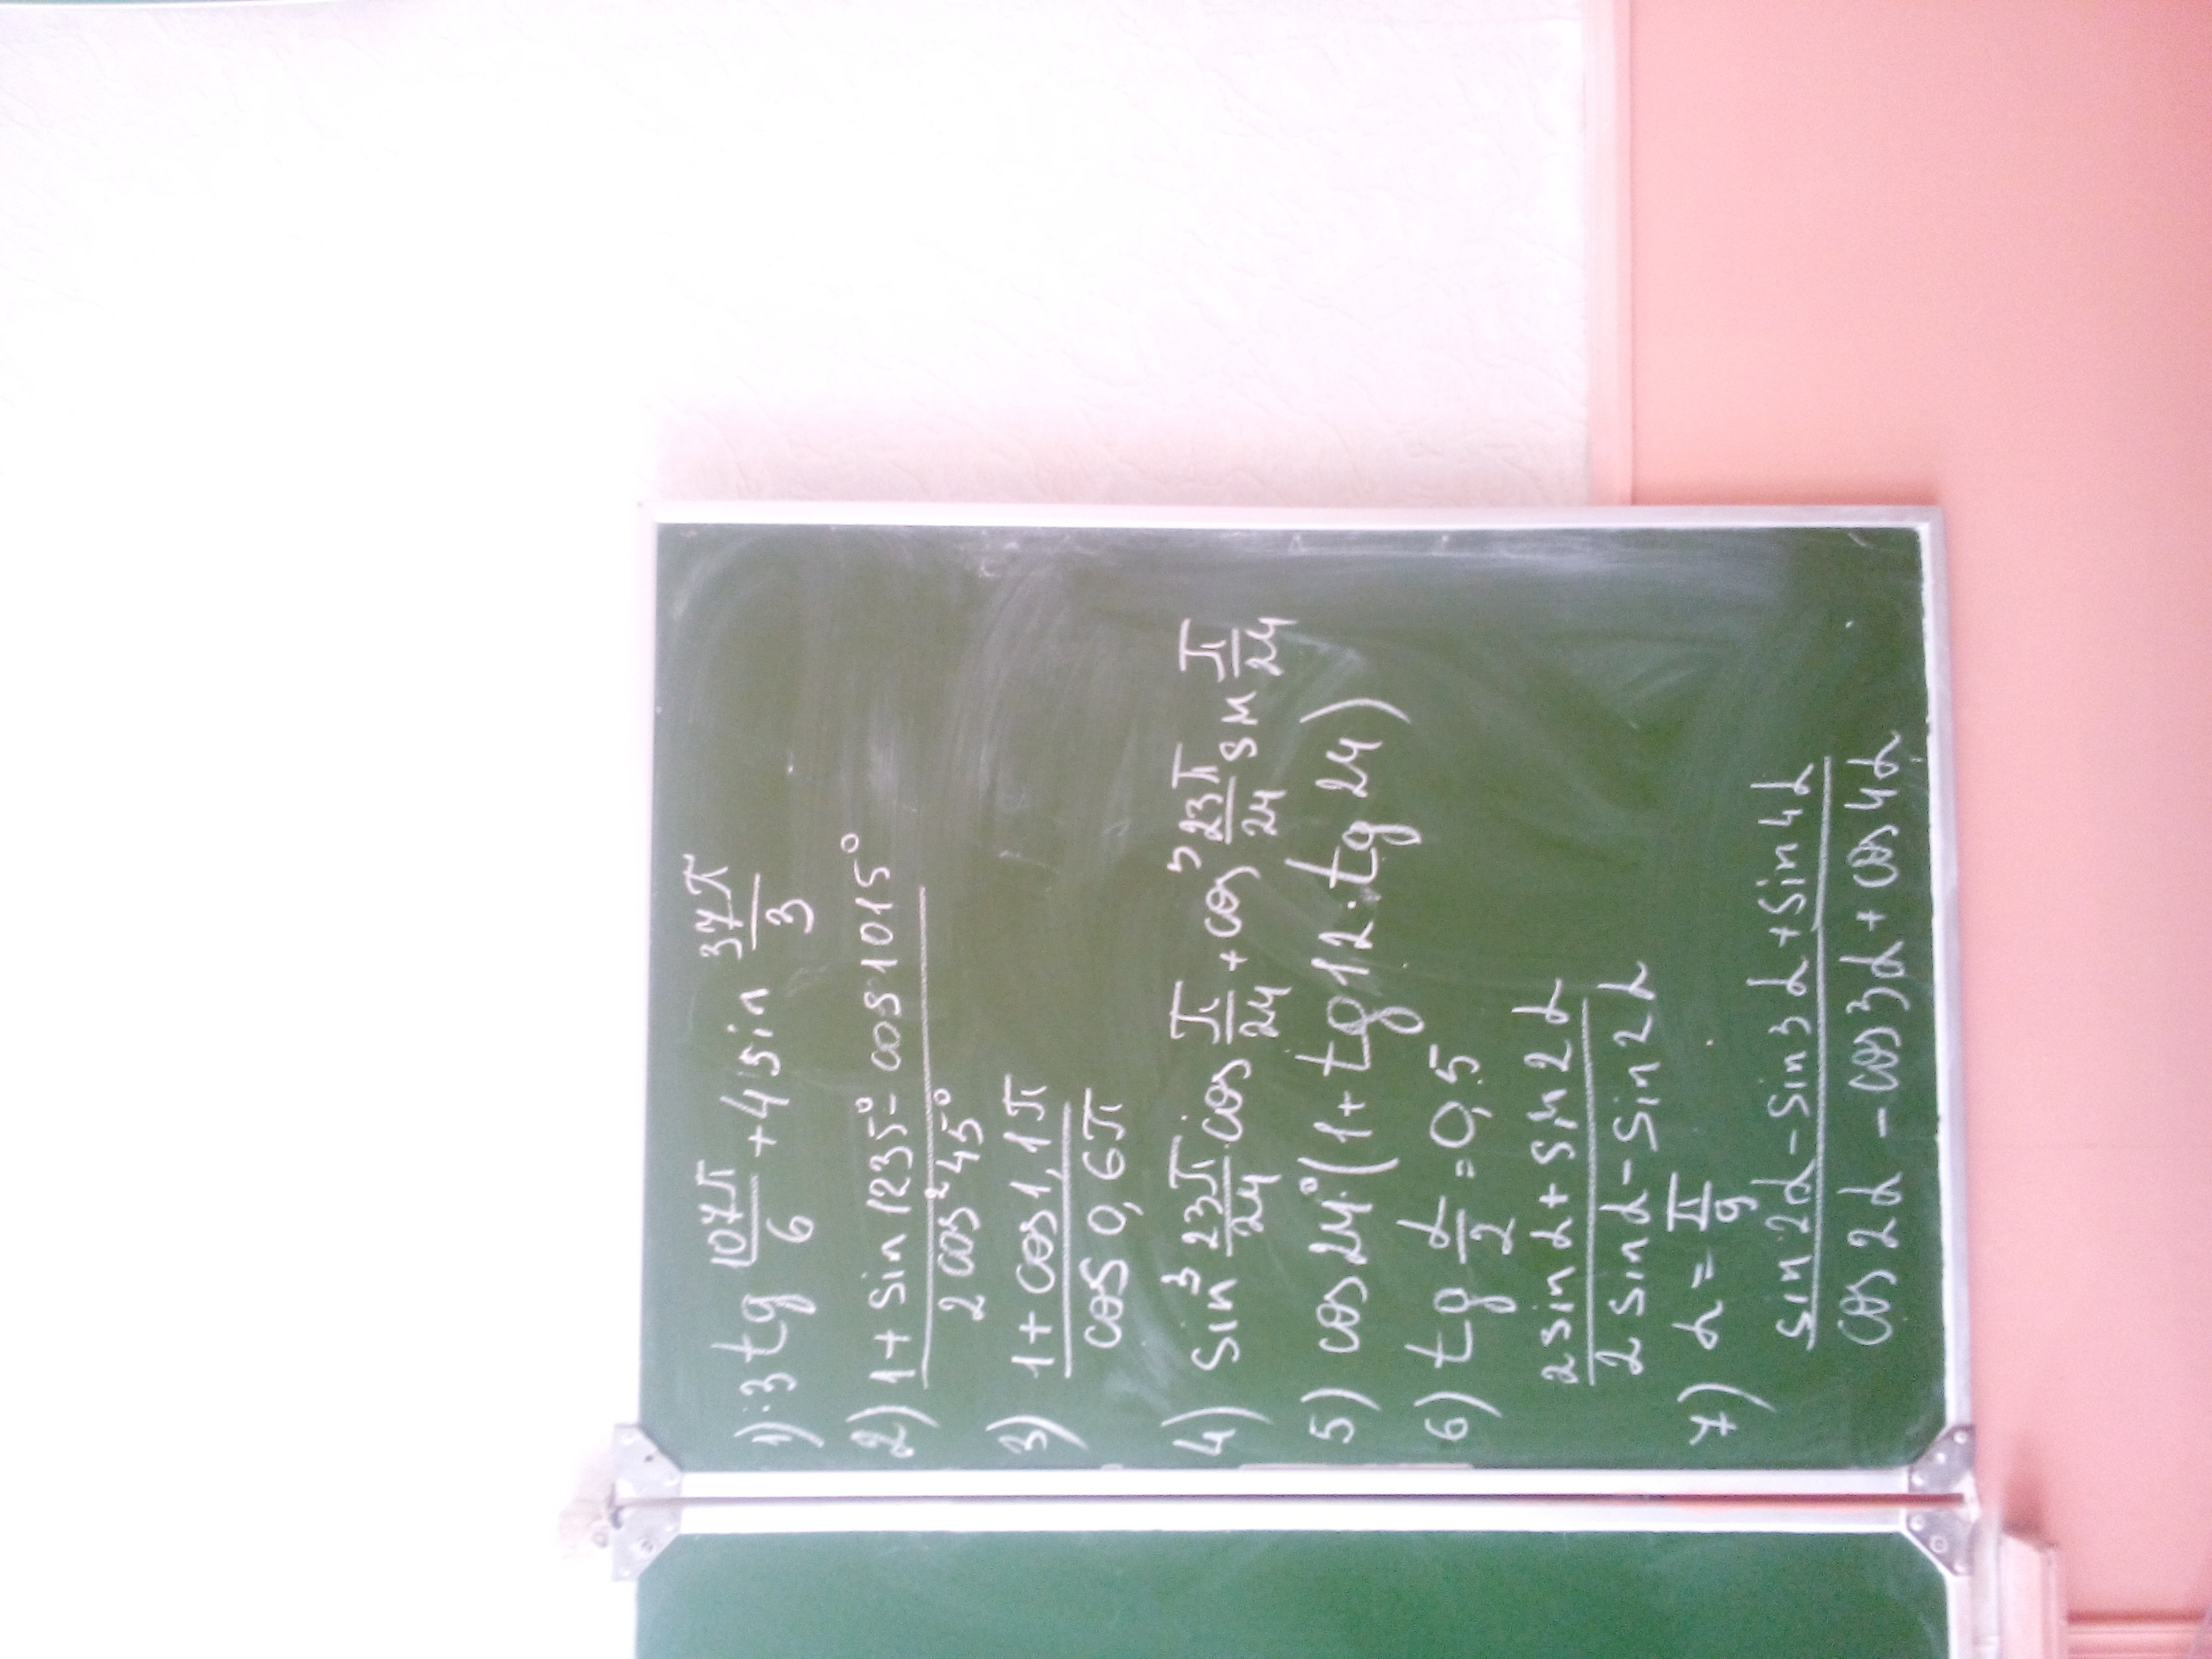 1) 3tg 107π/6 + 4sin 37π/3
2) 1 + sin 1235° - cos 1015°
2 cos² 45°
3) 1 + cos 1,1π
cos 0,6π
4) sin³ 23π/24 · cos π/24 + cos³ 23π/24 sin π/24
5) cos 24° · (1 + tg 12 · tg 24)
6) tg α/2 = 0,5
2 sin α + sin 2α
2 sin α - sin 2α
7) α = π/9
sin 2α - sin 3α + sin 4α
cos 2α - cos 3α + cos 4α